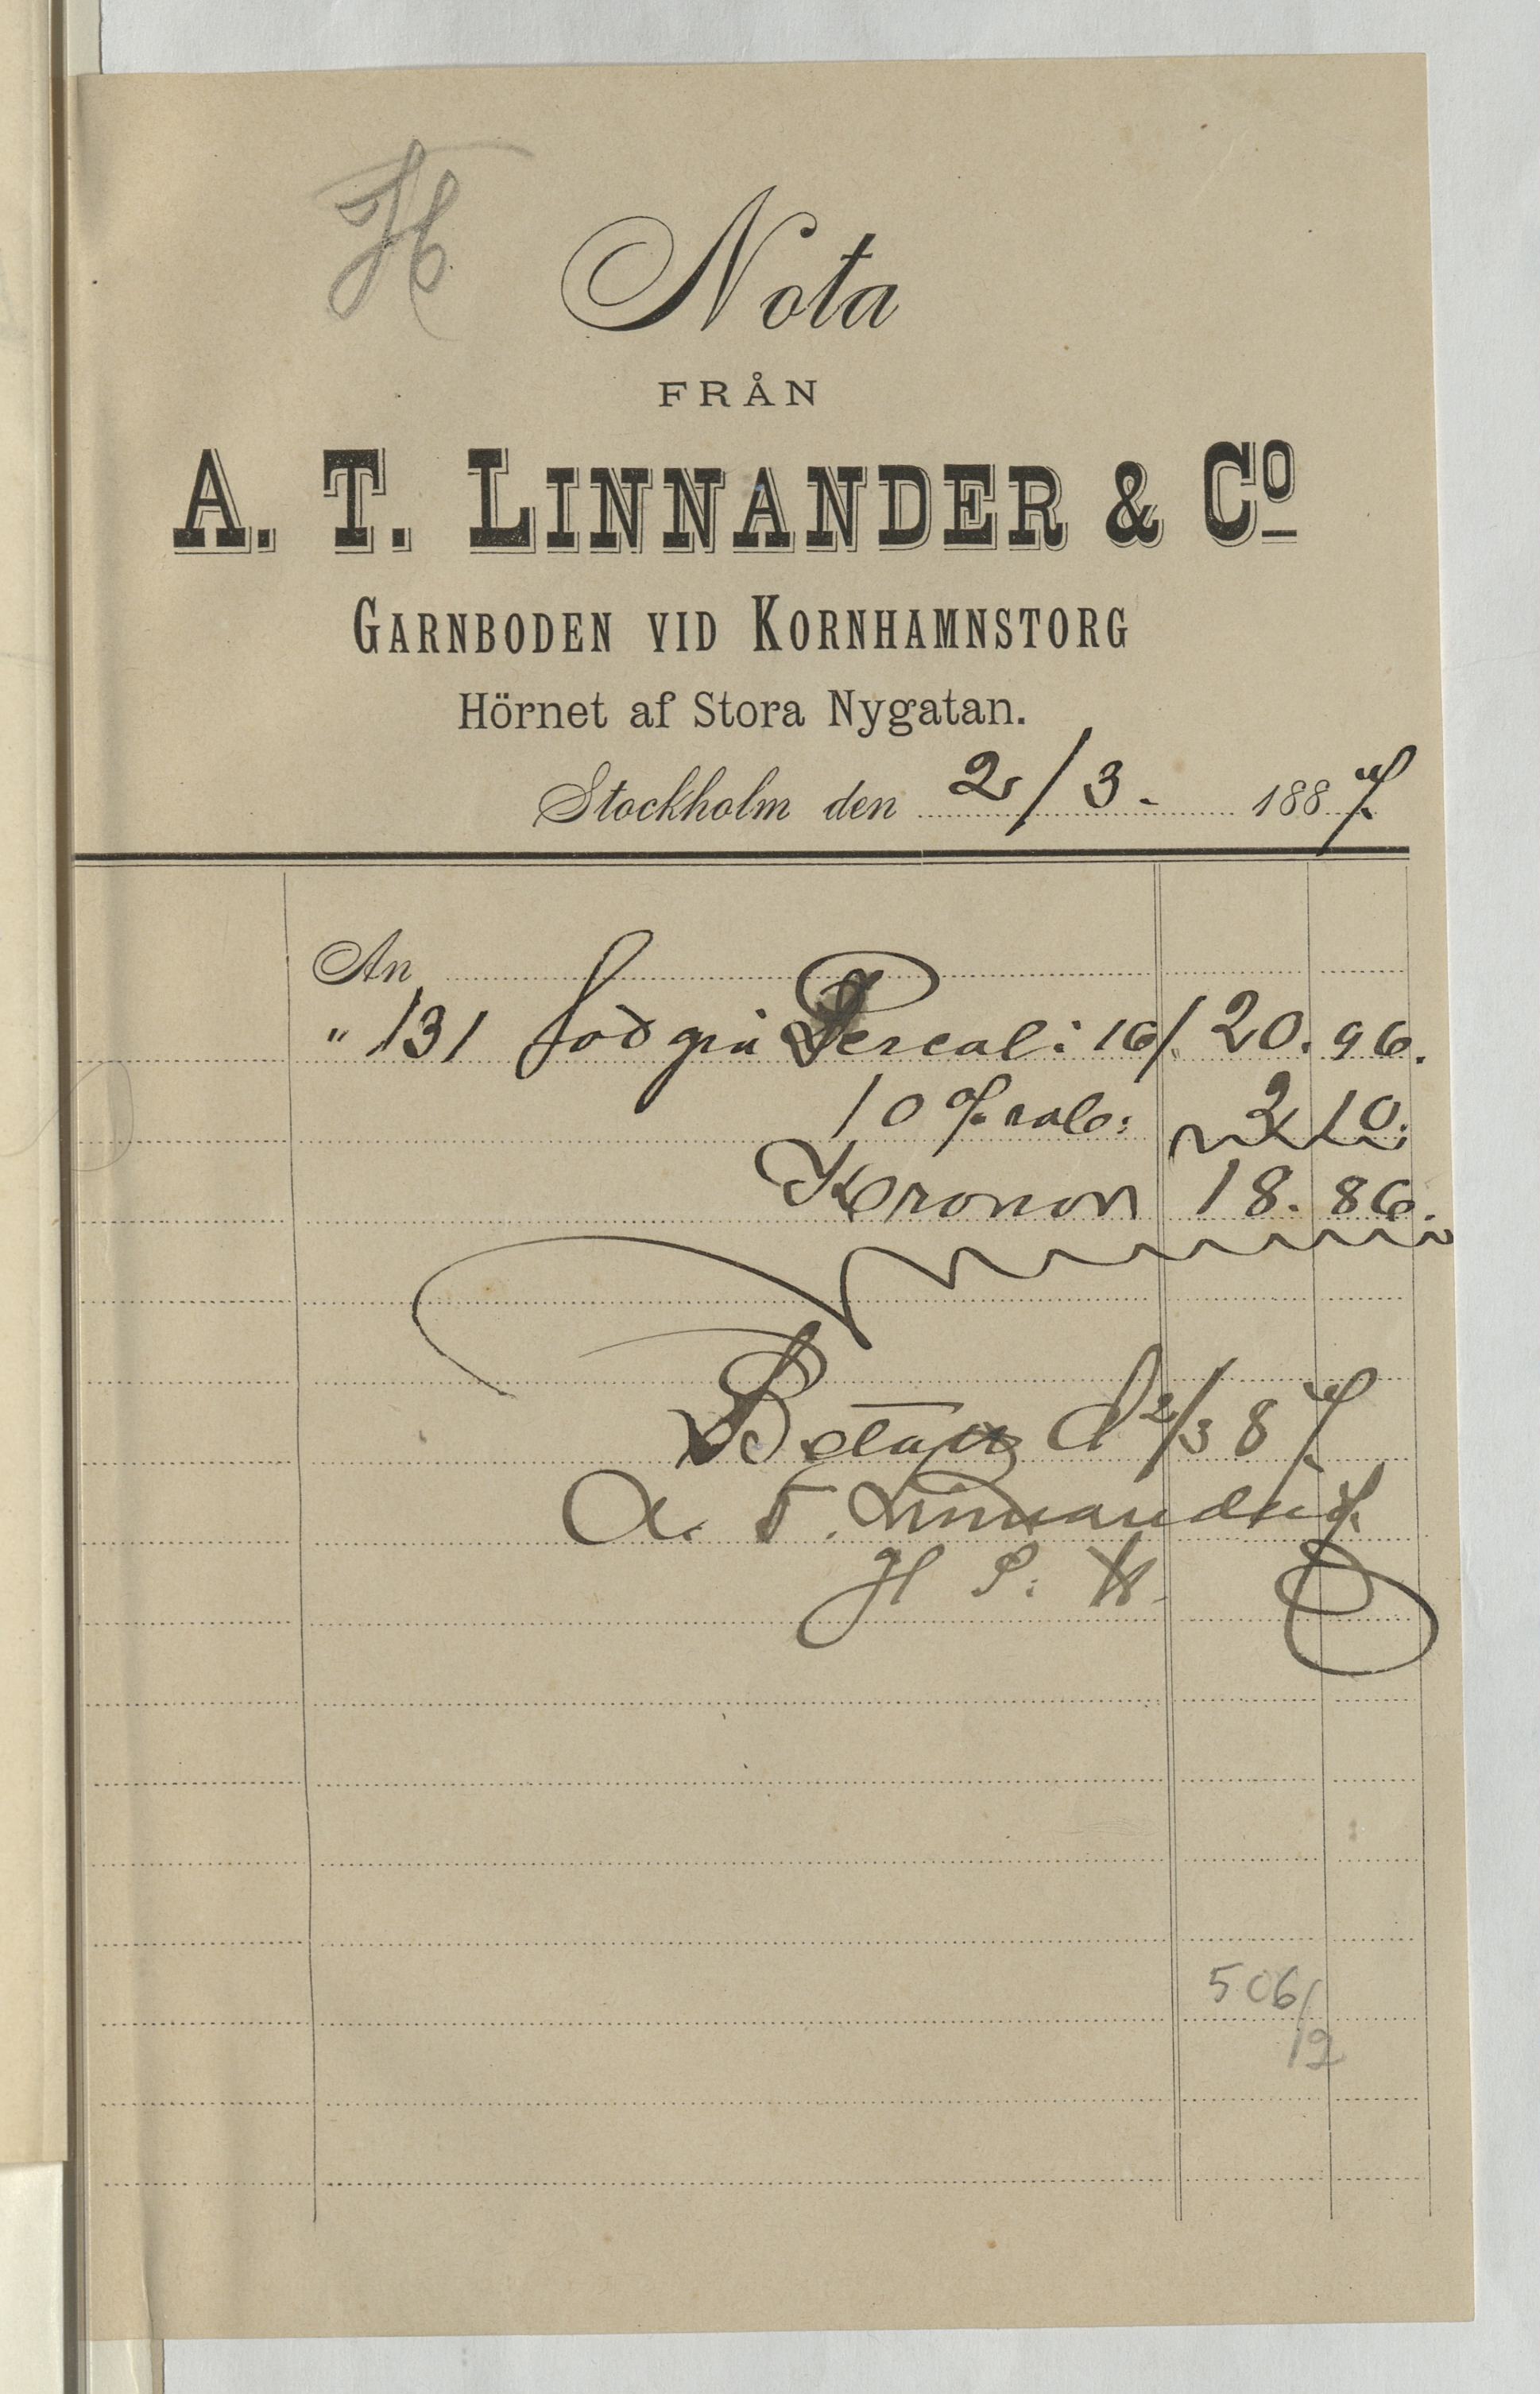 H
Nota
FRÅN
A. T. LINNANDER & Co
GARNBODEN VID KORNHAMNSTORG
Hörnet af Stora Nygatan.
Stockholm den 2/3 - 1887.
An
" 131 fod grå Percal: 16/. 20. 96.
10 % rab: 2 10.
Kronor 18. 86.
Betalt d 2/3 87.
A. T. Linnander
H P. W.
506/12